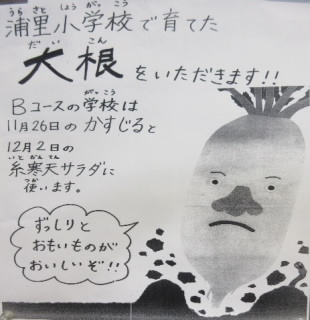 浦里小学校で育てた
大根をいただきます!!
Bコースの学校は
11月26日のかすじると
12月2日の
糸寒天サラダに
使います。
ずっしりと
おもいものが
おいしいぞ!!